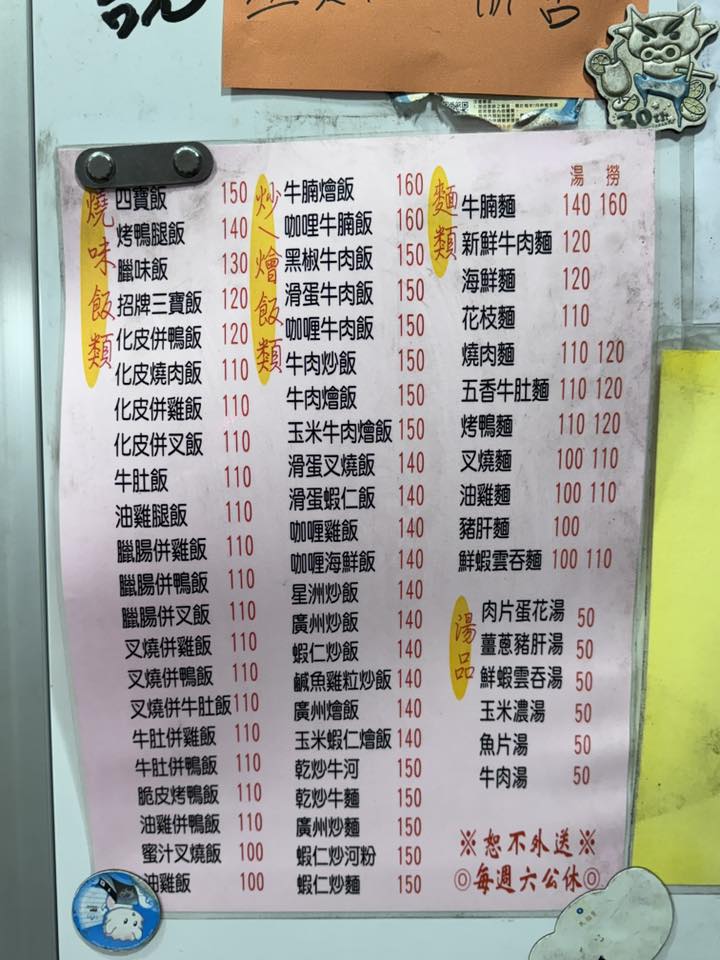 燒味飯類
四寶飯 150
烤鴨腿飯 140
臘味飯 130
招牌三寶飯 120
化皮併鴨飯 120
化皮燒肉飯 110
化皮併雞飯 110
化皮併叉飯 110
牛肚飯 110
油雞腿飯 110
臘腸併雞飯 110
臘腸併鴨飯 110
臘腸併叉飯 110
叉燒併雞飯 110
叉燒併鴨飯 110
叉燒併牛肚飯 110
牛肚併雞飯 110
牛肚併鴨飯 110
脆皮烤鴨飯 110
油雞併鴨飯 110
蜜汁叉燒飯 100
油雞飯 100
炒\燴飯類
牛腩燴飯 160
咖哩牛腩飯 160
黑椒牛肉飯 150
滑蛋牛肉飯 150
咖喱牛肉飯 150
牛肉炒飯 150
牛肉燴飯 150
玉米牛肉燴飯 150
滑蛋叉燒飯 140
滑蛋蝦仁飯 140
咖喱雞飯 140
咖喱海鮮飯 140
星洲炒飯 140
廣州炒飯 140
蝦仁炒飯 140
鹹魚雞粒炒飯 140
廣州燴飯 140
玉米蝦仁燴飯 140
乾炒牛河 150
乾炒牛麵 150
廣州炒麵 150
蝦仁炒河粉 150
蝦仁炒麵 150
麵類
湯 撈
牛腩麵 140 160
新鮮牛肉麵 120
海鮮麵 120
花枝麵 110
燒肉麵 110 120
五香牛肚麵 110 120
烤鴨麵 110 120
叉燒麵 100 110
油雞麵 100 110
豬肝麵 100
鮮蝦雲吞麵 100 110
湯品
肉片蛋花湯 50
薑蔥豬肝湯 50
鮮蝦雲吞湯 50
玉米濃湯 50
魚片湯 50
牛肉湯 50
※恕不外送※
◎每週六公休◎